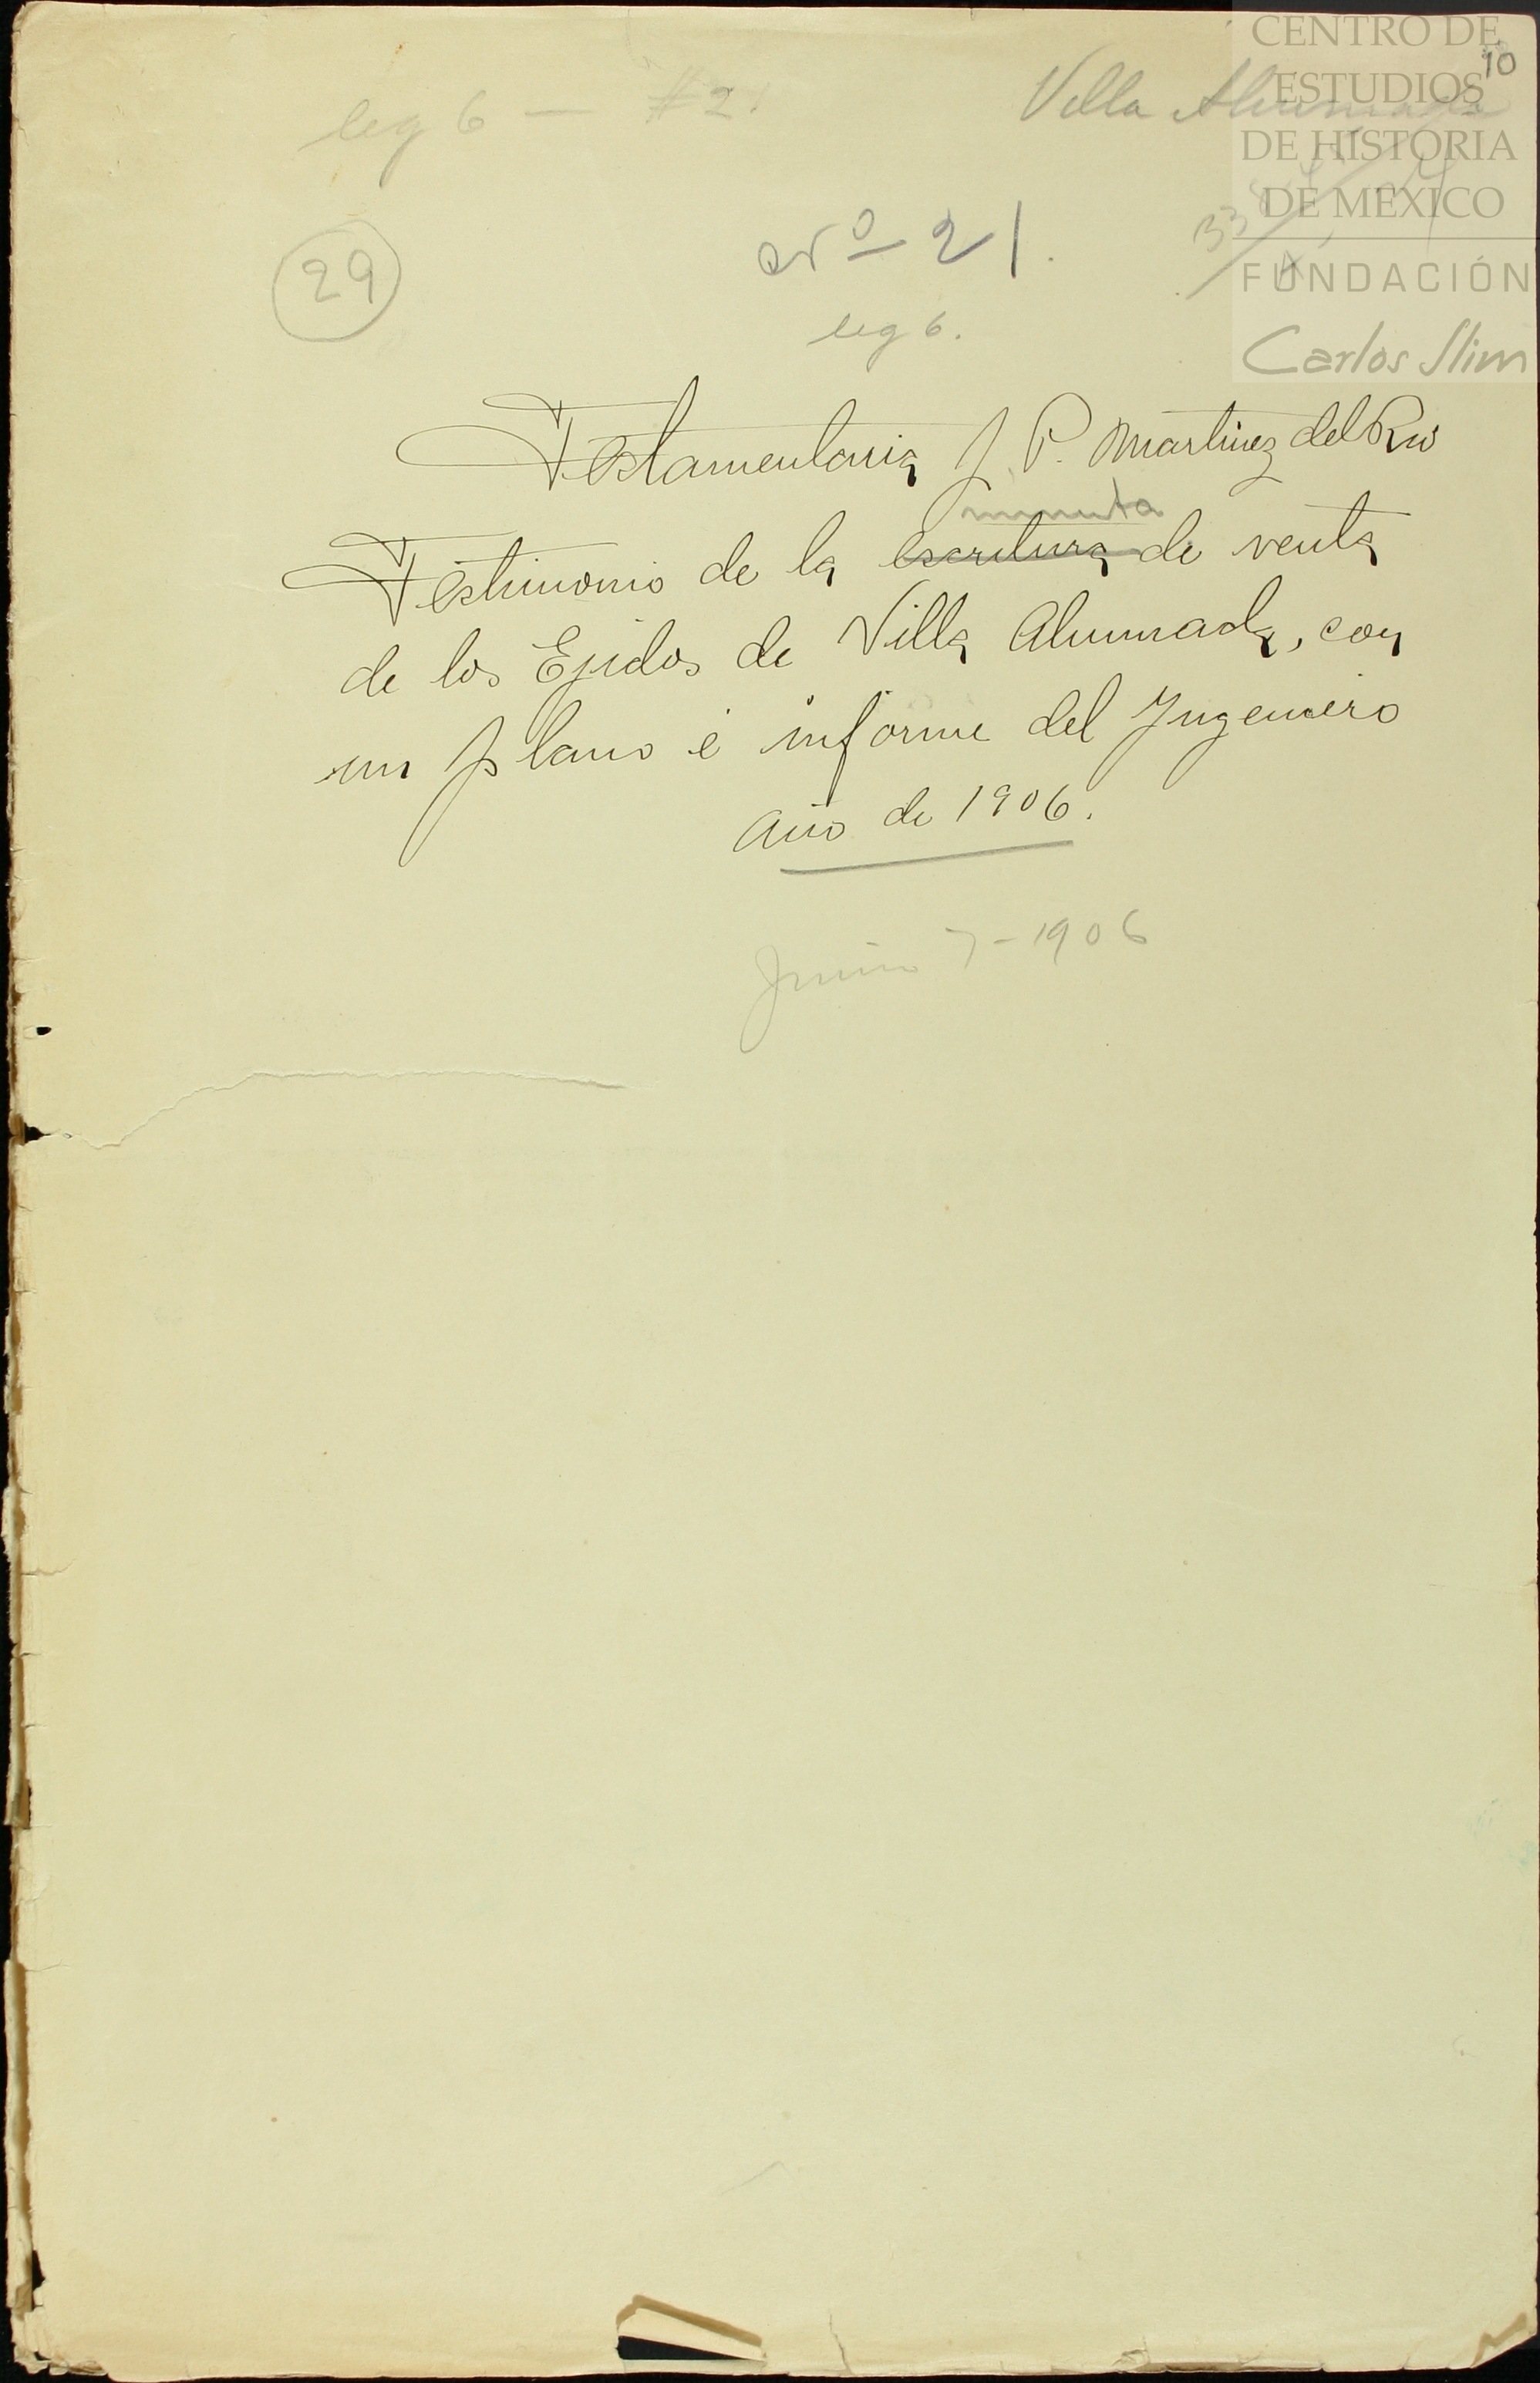 CENTRO DE
ESTUDIOS
DE HISTORIA
DE MEXICO
FUNDACIÓN
Carlos Slim
10
leg 6 — #2
Villa Ahumada
29
No 21.
leg 6.
Testamentaria J. P. Martinez del Rio
minuta
Testimonio de la escritura de venta
de los Ejidos de Villa Ahumada, con
un plano é informe del Ingeniero
Año de 1906.
Junio 7-1906